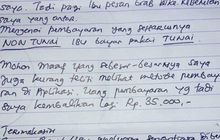 saya. Tadi pagi Ibu pesan Grab Bike kebetulan
saya yang antar.
Mengenai pembayaran yang seharusnya
NON TUNAI Ibu bayar pakai TUNAI.
Mohon maaf yang sebesar-besarnya saya
juga kurang teliti melihat metode pembayar
an di Aplikasi. Uang pembayaran yg tadi
saya kembalikan lagi Rp. 35.000,-
Terimakasih